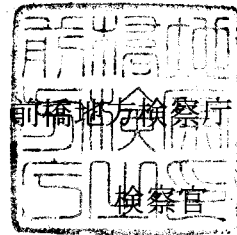 前橋地方検察庁
検察官